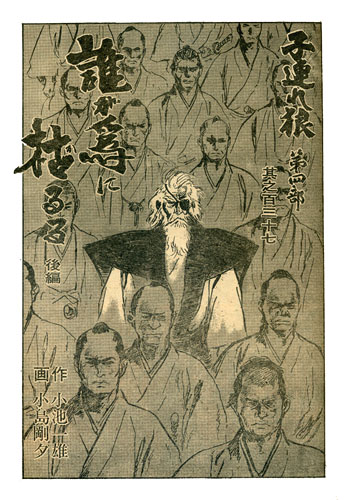 子連れ狼
第四部
其之百三十七
誰が為に
枯るる
後編
作 小池一雄
画 小島剛夕